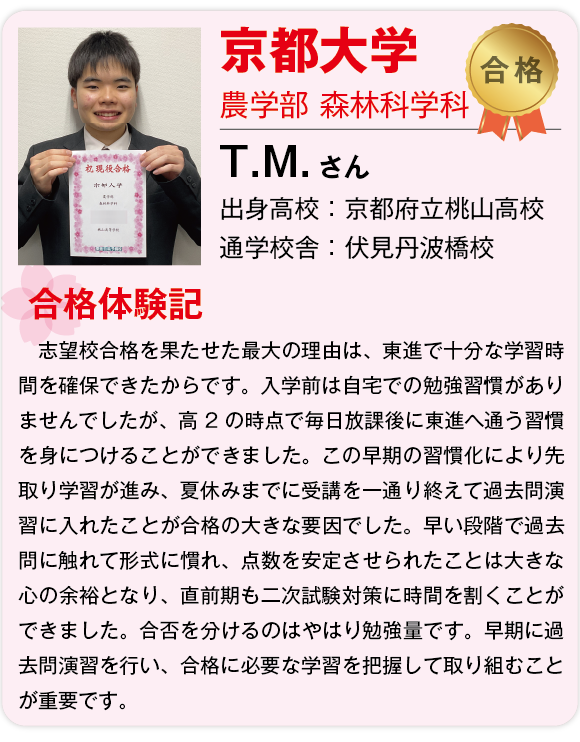 京都大学
合格
農学部 森林科学科
T.M. さん
出身高校：京都府立桃山高校
通学校舎：伏見丹波橋校
祝現役合格
京都大学
農学部
森林科学科
合格体験記
志望校合格を果たせた最大の理由は、東進で十分な学習時
間を確保できたからです。入学前は自宅での勉強習慣があり
ませんでしたが、高２の時点で毎日放課後に東進へ通う習慣
を身につけることができました。この早期の習慣化により先
取り学習が進み、夏休みまでに受講を一通り終えて過去問演
習に入れたことが合格の大きな要因でした。早い段階で過去
問に触れて形式に慣れ、点数を安定させられたことは大きな
心の余裕となり、直前期も二次試験対策に時間を割くことが
できました。合否を分けるのはやはり勉強量です。早期に過
去問演習を行い、合格に必要な学習を把握して取り組むこと
が重要です。